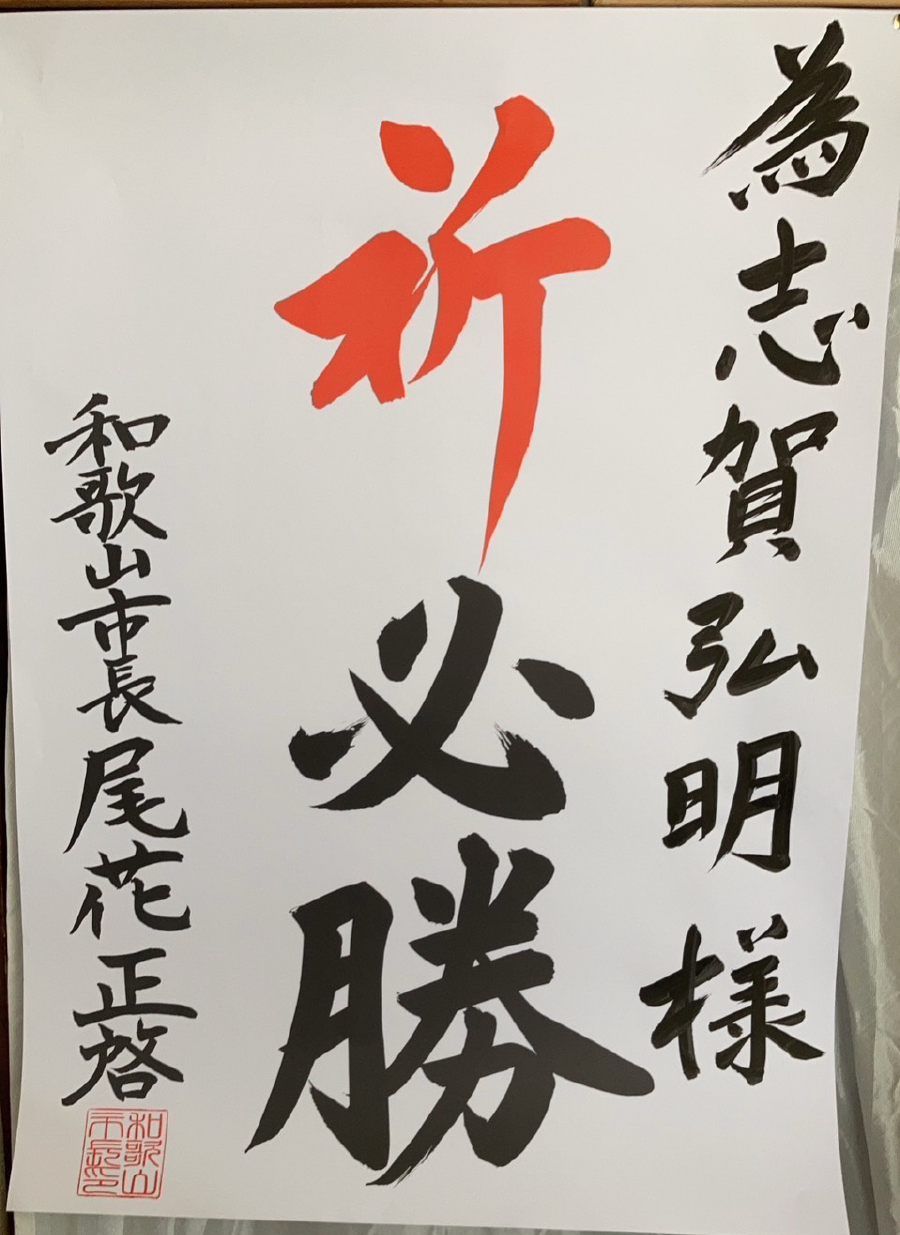 為志賀弘明様
祈必勝
和歌山市長尾花正啓
和歌山
市長印